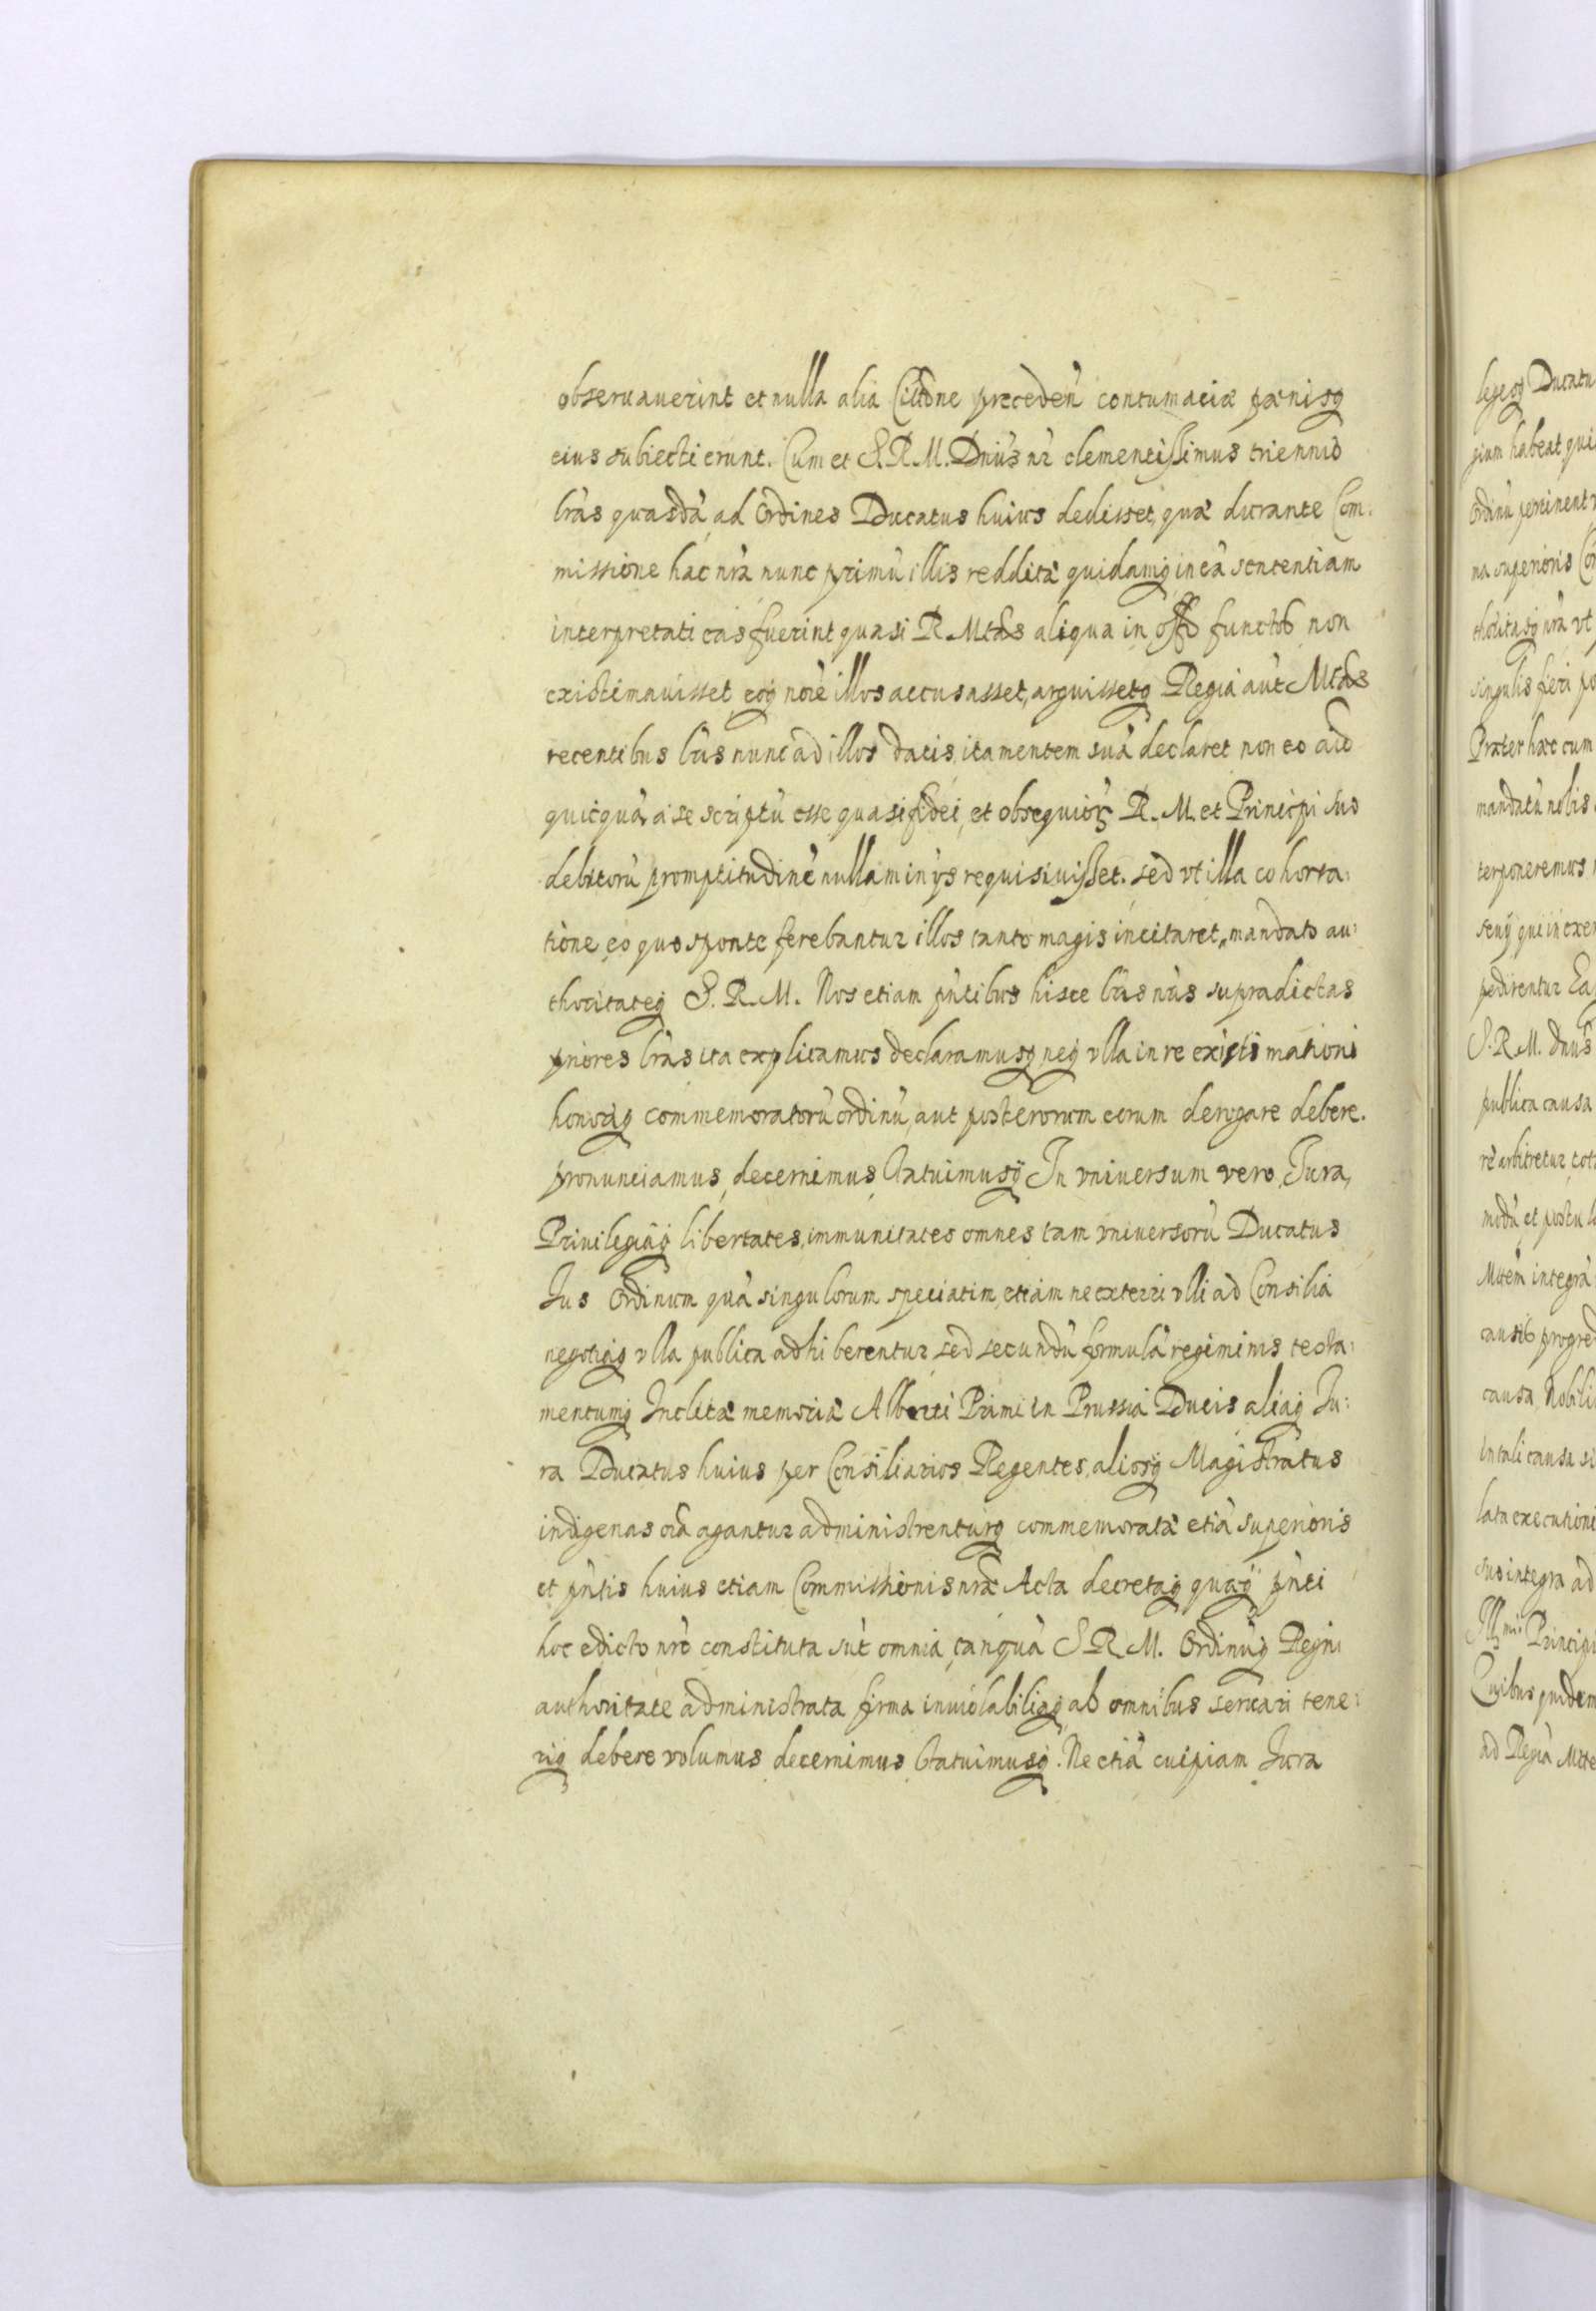 obseruauerint et nulla alia Cittõne precedeñ contumaciæ pænisq
eius subiecti erunt. Cum et S. R. M. Dnūs nr̄ clementissimus triennio
lr̄as quasdā ad Ordines Ducatus huius dedisset, quæ durante Com:
missione hac nrā nunc primū illis redditæ quidamq in eā sententiam
interpretati eas fuerint quasi R. Mtas aliqua in offō functos non
existimauisset, eoq nõīe illos accusasset, arguissetq Regiā aūt Mtas
recentibus lr̄is nunc ad illos datis ita mentem suā declaret non eo aīo
quicquā a se scriptū esse quasi fidei, et obsequiorꝫ R. M. et Principi suo
debitorū promptitudinē nullam in ijs requisiuisset. sed vt illa cohorta:
tione eo quo sponte ferebantur illos tanto magis incitaret, mandato au:
thoritateq S. R. M. Nos etiam pn̄tibus hisce lr̄is nr̄is supradictas
priores lr̄as ita explicamus declaramusq neq vlla in re existimationi
honoriq commemoratorū ordinū, aut posterorum eorum derogare debere.
pronunciamus, decernimus, statuimusq In vniuersum vero, Jura,
Priuilegiaq libertates, immunitates omnes tam vniuersorū Ducatus
Jus Ordinum quā singulorum speciatim, etiam ne exteri vlli ad Consilia
negotiaq vlla publica adhiberentur sed secundū formulā regiminis testa:
mentumq Inclitæ memoriæ Alberti Primi in Prussia Ducis aliaq Ju:
ra Ducatus huius per Consiliarios Regentes, aliosq Magistratus
indigenas oīa agantur administrenturq commemoratæ etiā superioris
et pn̄tis huius etiam Commissionis nrǣ Acta decretaq quæq pn̄ti
hoc edicto nrō constituta sūt omnia, tanquā S R M. Ordinūq Regni
authoritate administrata firma inuiolabiliaq ab omnibus seruari tene:
riq debere volumus decernimus statuimusq. Ne etiā cuipiam Jura